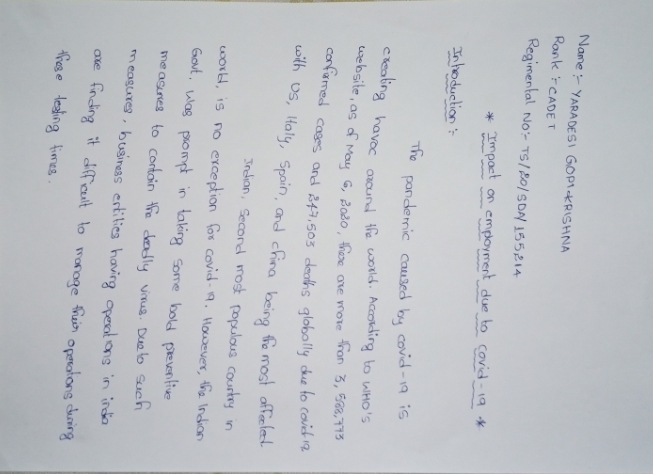 Name:- YARADESI GOPI KRISHNA
Rank :- CADET
Regimental No:- TS/20/SDA/155214
* Impact on employment due to covid-19 *
Introduction :-
The pandemic caused by covid-19 is
creating havoc around the world. According to WHO's
website, as of May 6, 2020, there are more than 3, 588,773
confirmed cases and 247,503 deaths globally due to covid-19
with US, Italy, Spain, and china being the most affected.
Indian, Second most populous country in
world, is no exception for covid-19. However, the Indian
Govt. was prompt in taking some bold preventive
measures to contain the deadly virus. Due to such
measures, business entities having operations in india
are finding it difficult to manage their operations during
these testing times.